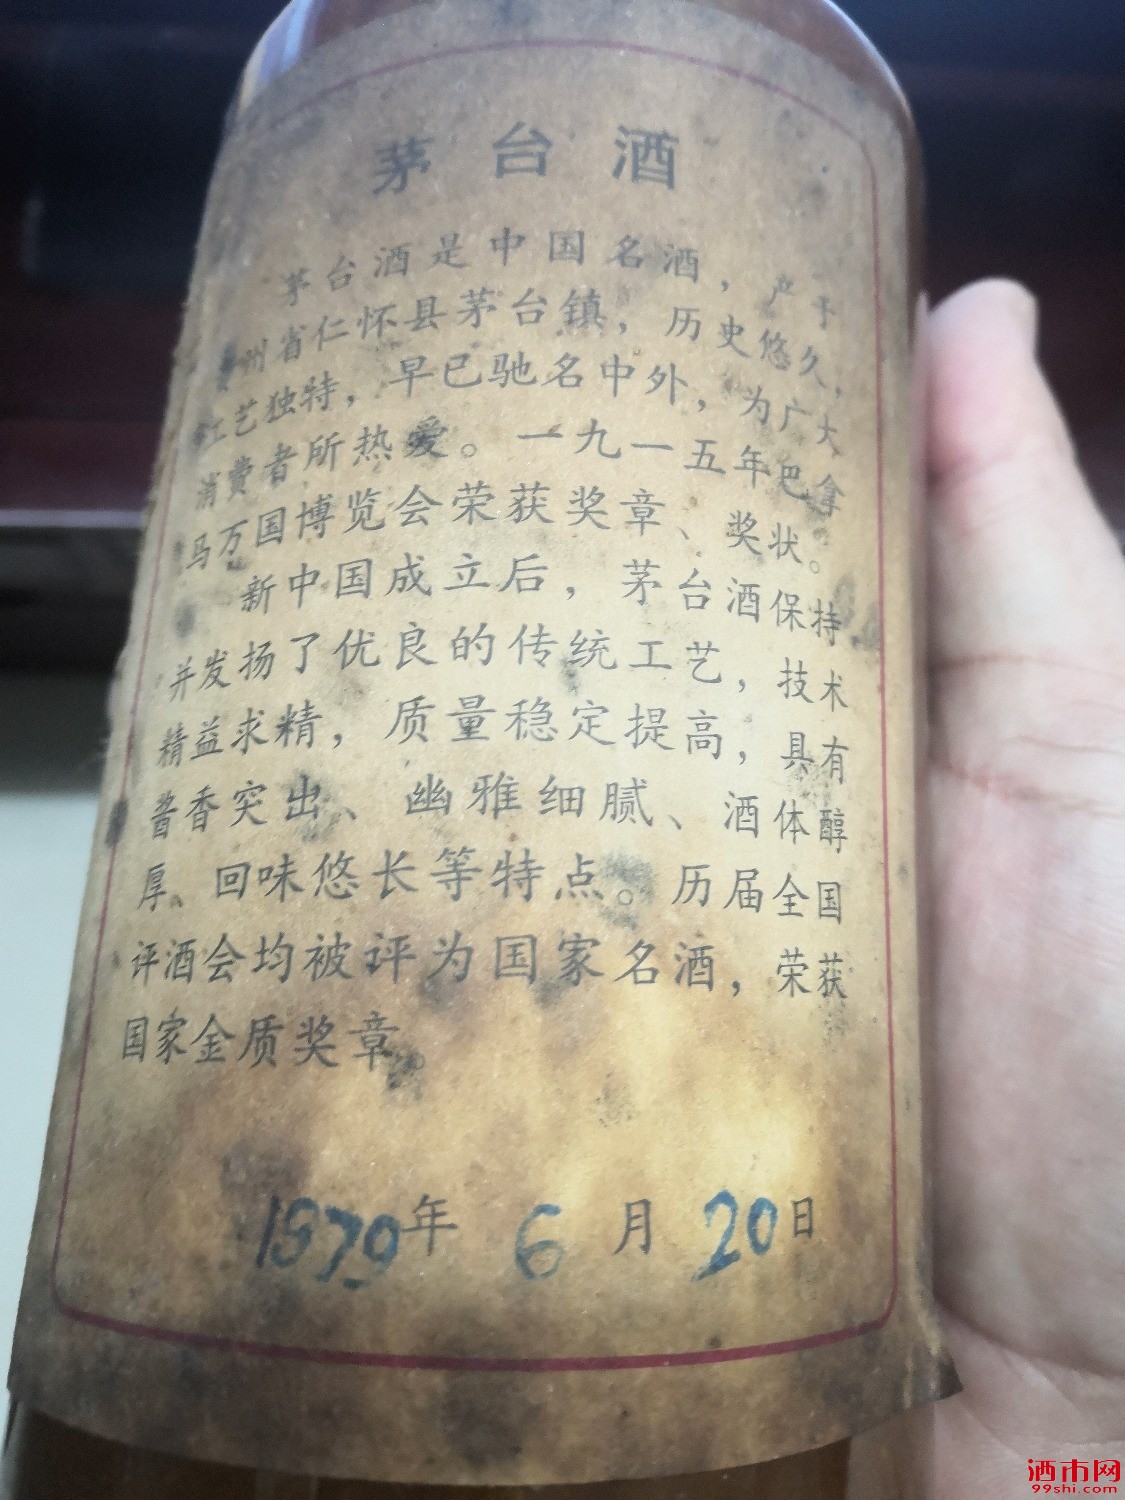 茅台酒
茅台酒是中国名酒，产于
贵州省仁怀县茅台镇，历史悠久，
工艺独特，早已驰名中外，为广大
消费者所热爱。一九一五年巴拿
马万国博览会荣获奖章、奖状。
新中国成立后，茅台酒保持
并发扬了优良的传统工艺，技术
精益求精，质量稳定提高，具有
酱香突出、幽雅细腻、酒体醇
厚、回味悠长等特点。历届全国
评酒会均被评为国家名酒，荣获
国家金质奖章。
1979年 6月 20日
酒市网
99shi.com